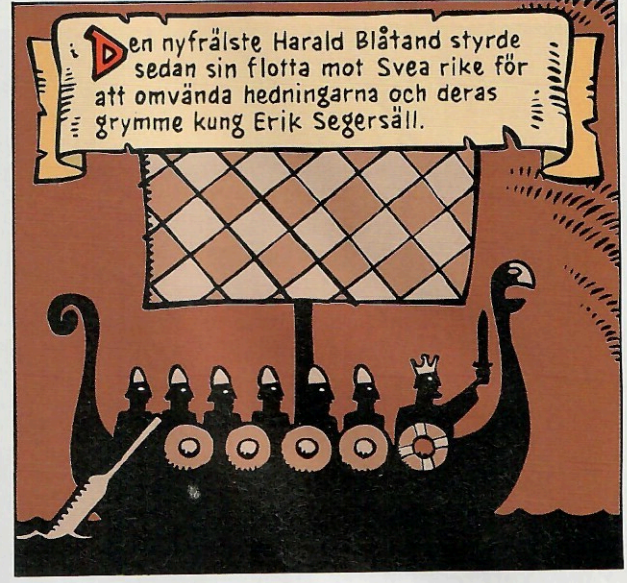 Den nyfrälste Harald Blåtand styrde
sedan sin flotta mot Svea rike för
att omvända hedningarna och deras
grymme kung Erik Segersäll.